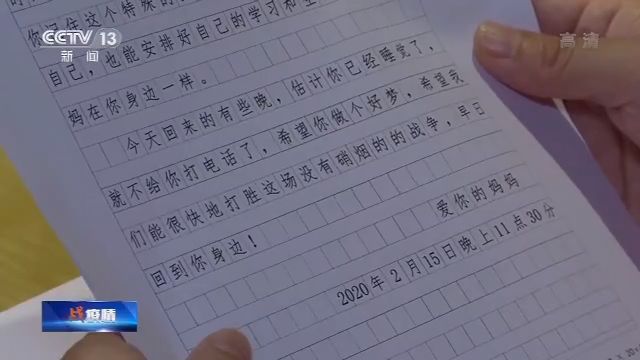 CCTV 13
新闻
高清
你记住这个特殊的
自己，也能安排好自己的学习和生
妈在你身边一样。
今天回来的有些晚，估计你已经睡觉了，
就不给你打电话了，希望你做个好梦，希望我
们能很快地打胜这场没有硝烟的的战争，早日
回到你身边！
爱你的妈妈
2020年2月15日晚上11点30分
战疫情